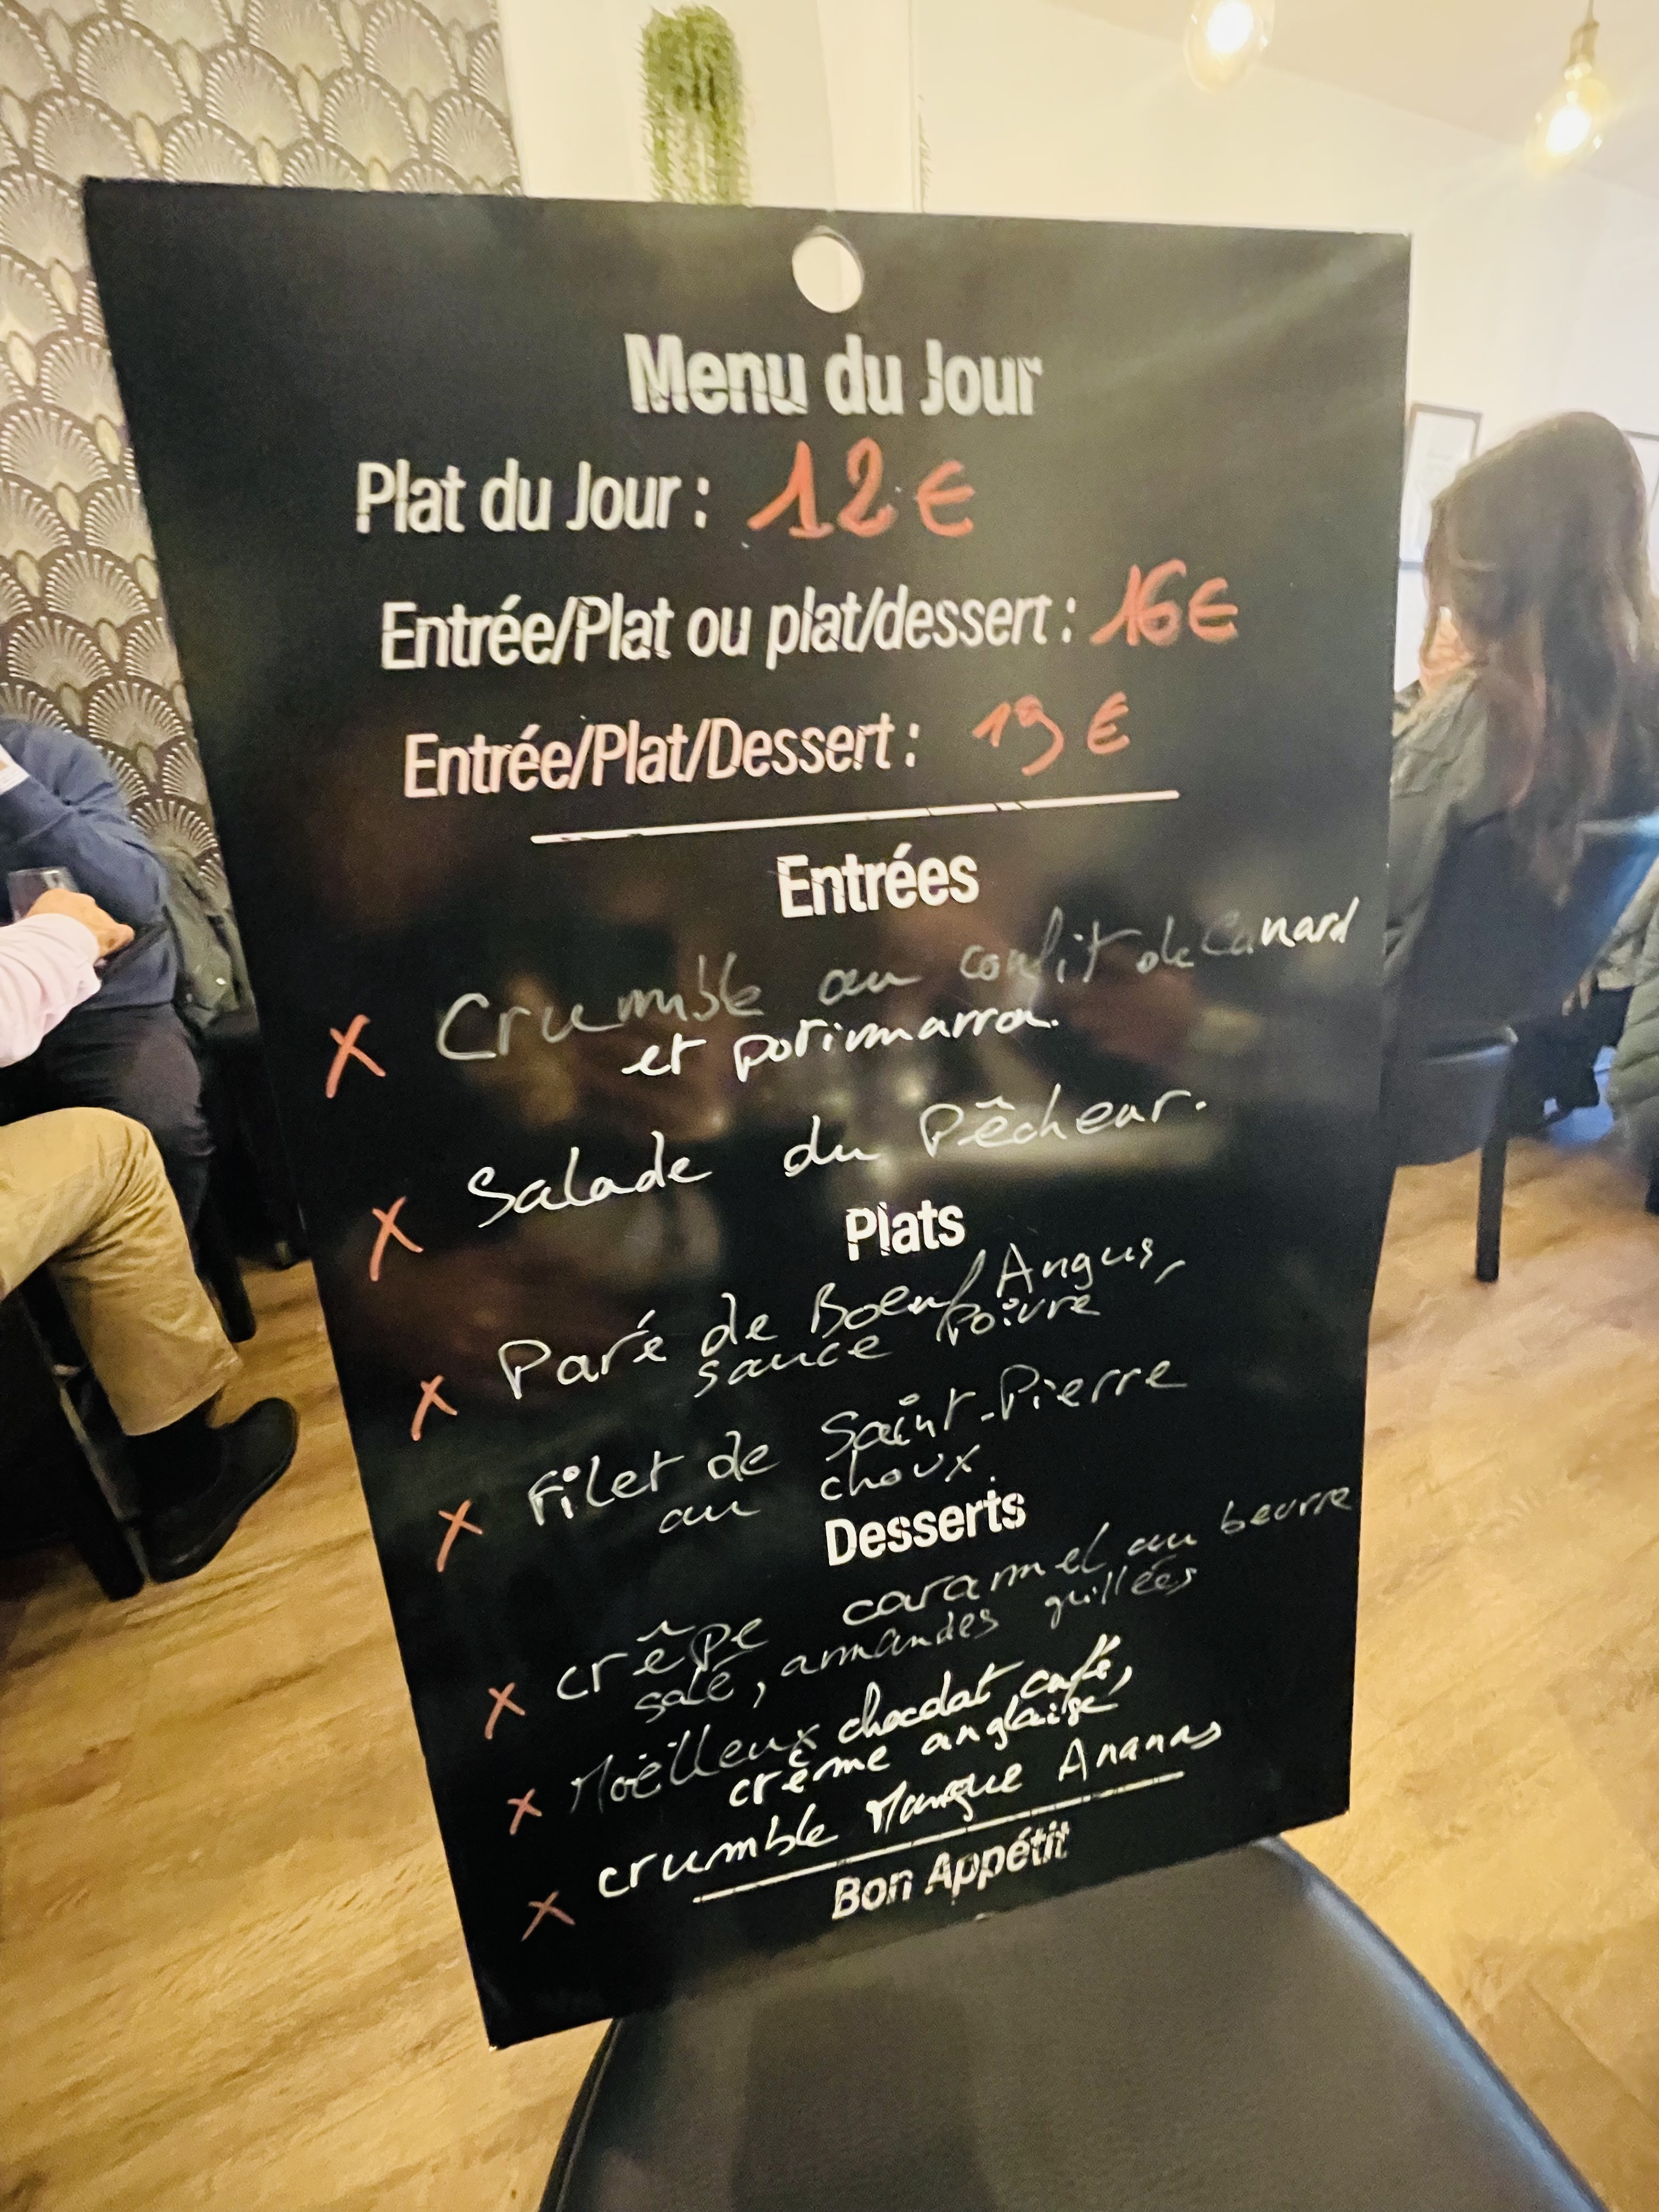 Menu du Jour
Plat du Jour : 12€
Entrée/Plat ou plat/dessert : 16€
Entrée/Plat/Dessert : 19€
Entrées
X Crumble au confit de Canard
et potimarron.
X Salade du Pêcheur.
Plats
X Paré de Boeuf Angus,
sauce Poivre
X Filet de Saint-Pierre
au choux.
Desserts
X crêpe caramel au beurre
salé, amandes grillées
X Moëlleux chocolat café,
crème anglaise
X crumble Mangue Ananas
Bon Appétit